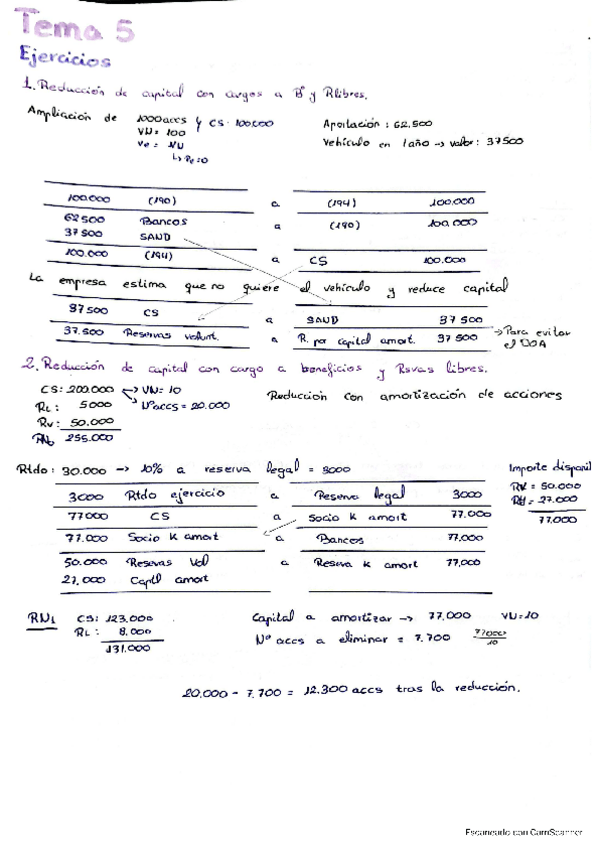 Tema 5
Ejercicios
1. Reducción de capital con cargos a Bº y Rlibres.
Ampliación de 1000 accs y CS: 100.000
VN = 100
Ve = VN
↳ Pe=0
Aportación: 62.500
Vehículo en 1 año → valor: 37500
100.000 (190) a (194) 100.000
62500 Bancos
37500 SAND a (190) 100.000
100.000 (194) a CS 100.000
La empresa estima que no quiere el vehículo y reduce capital
37500 CS a SAND 37500
37.500 Reservas volunt. a R. por capital amort. 37500 → Para evitar el DOA
2. Reducción de capital con cargo a beneficios y Rsvas libres.
CS: 200.000 → VN= 10
→ Nº accs = 20.000
RL: 5000
Rv: 50.000
RN₀ 255.000
Reducción con amortización de acciones
Rtdo: 30.000 → 10% a reserva legal = 3000
Importe disponi
RV = 50.000
= 27.000
77.000
3000 Rtdo ejercicio a Reserva legal 3000
77000 CS a Socio K amort 77.000
77.000 Socio K amort a Bancos 77.000
50.000 Resevas Vol a Reseva K amort 77.000
27.000 Captl amort
RN₁ CS: 123.000
RL: 8.000
131.000
Capital a amortizar → 77.000 VN=10
Nº accs a eliminar = 7.700 77000/10
20.000 - 7.700 = 12.300 accs tras la reducción.
Escaneado con CamScanner